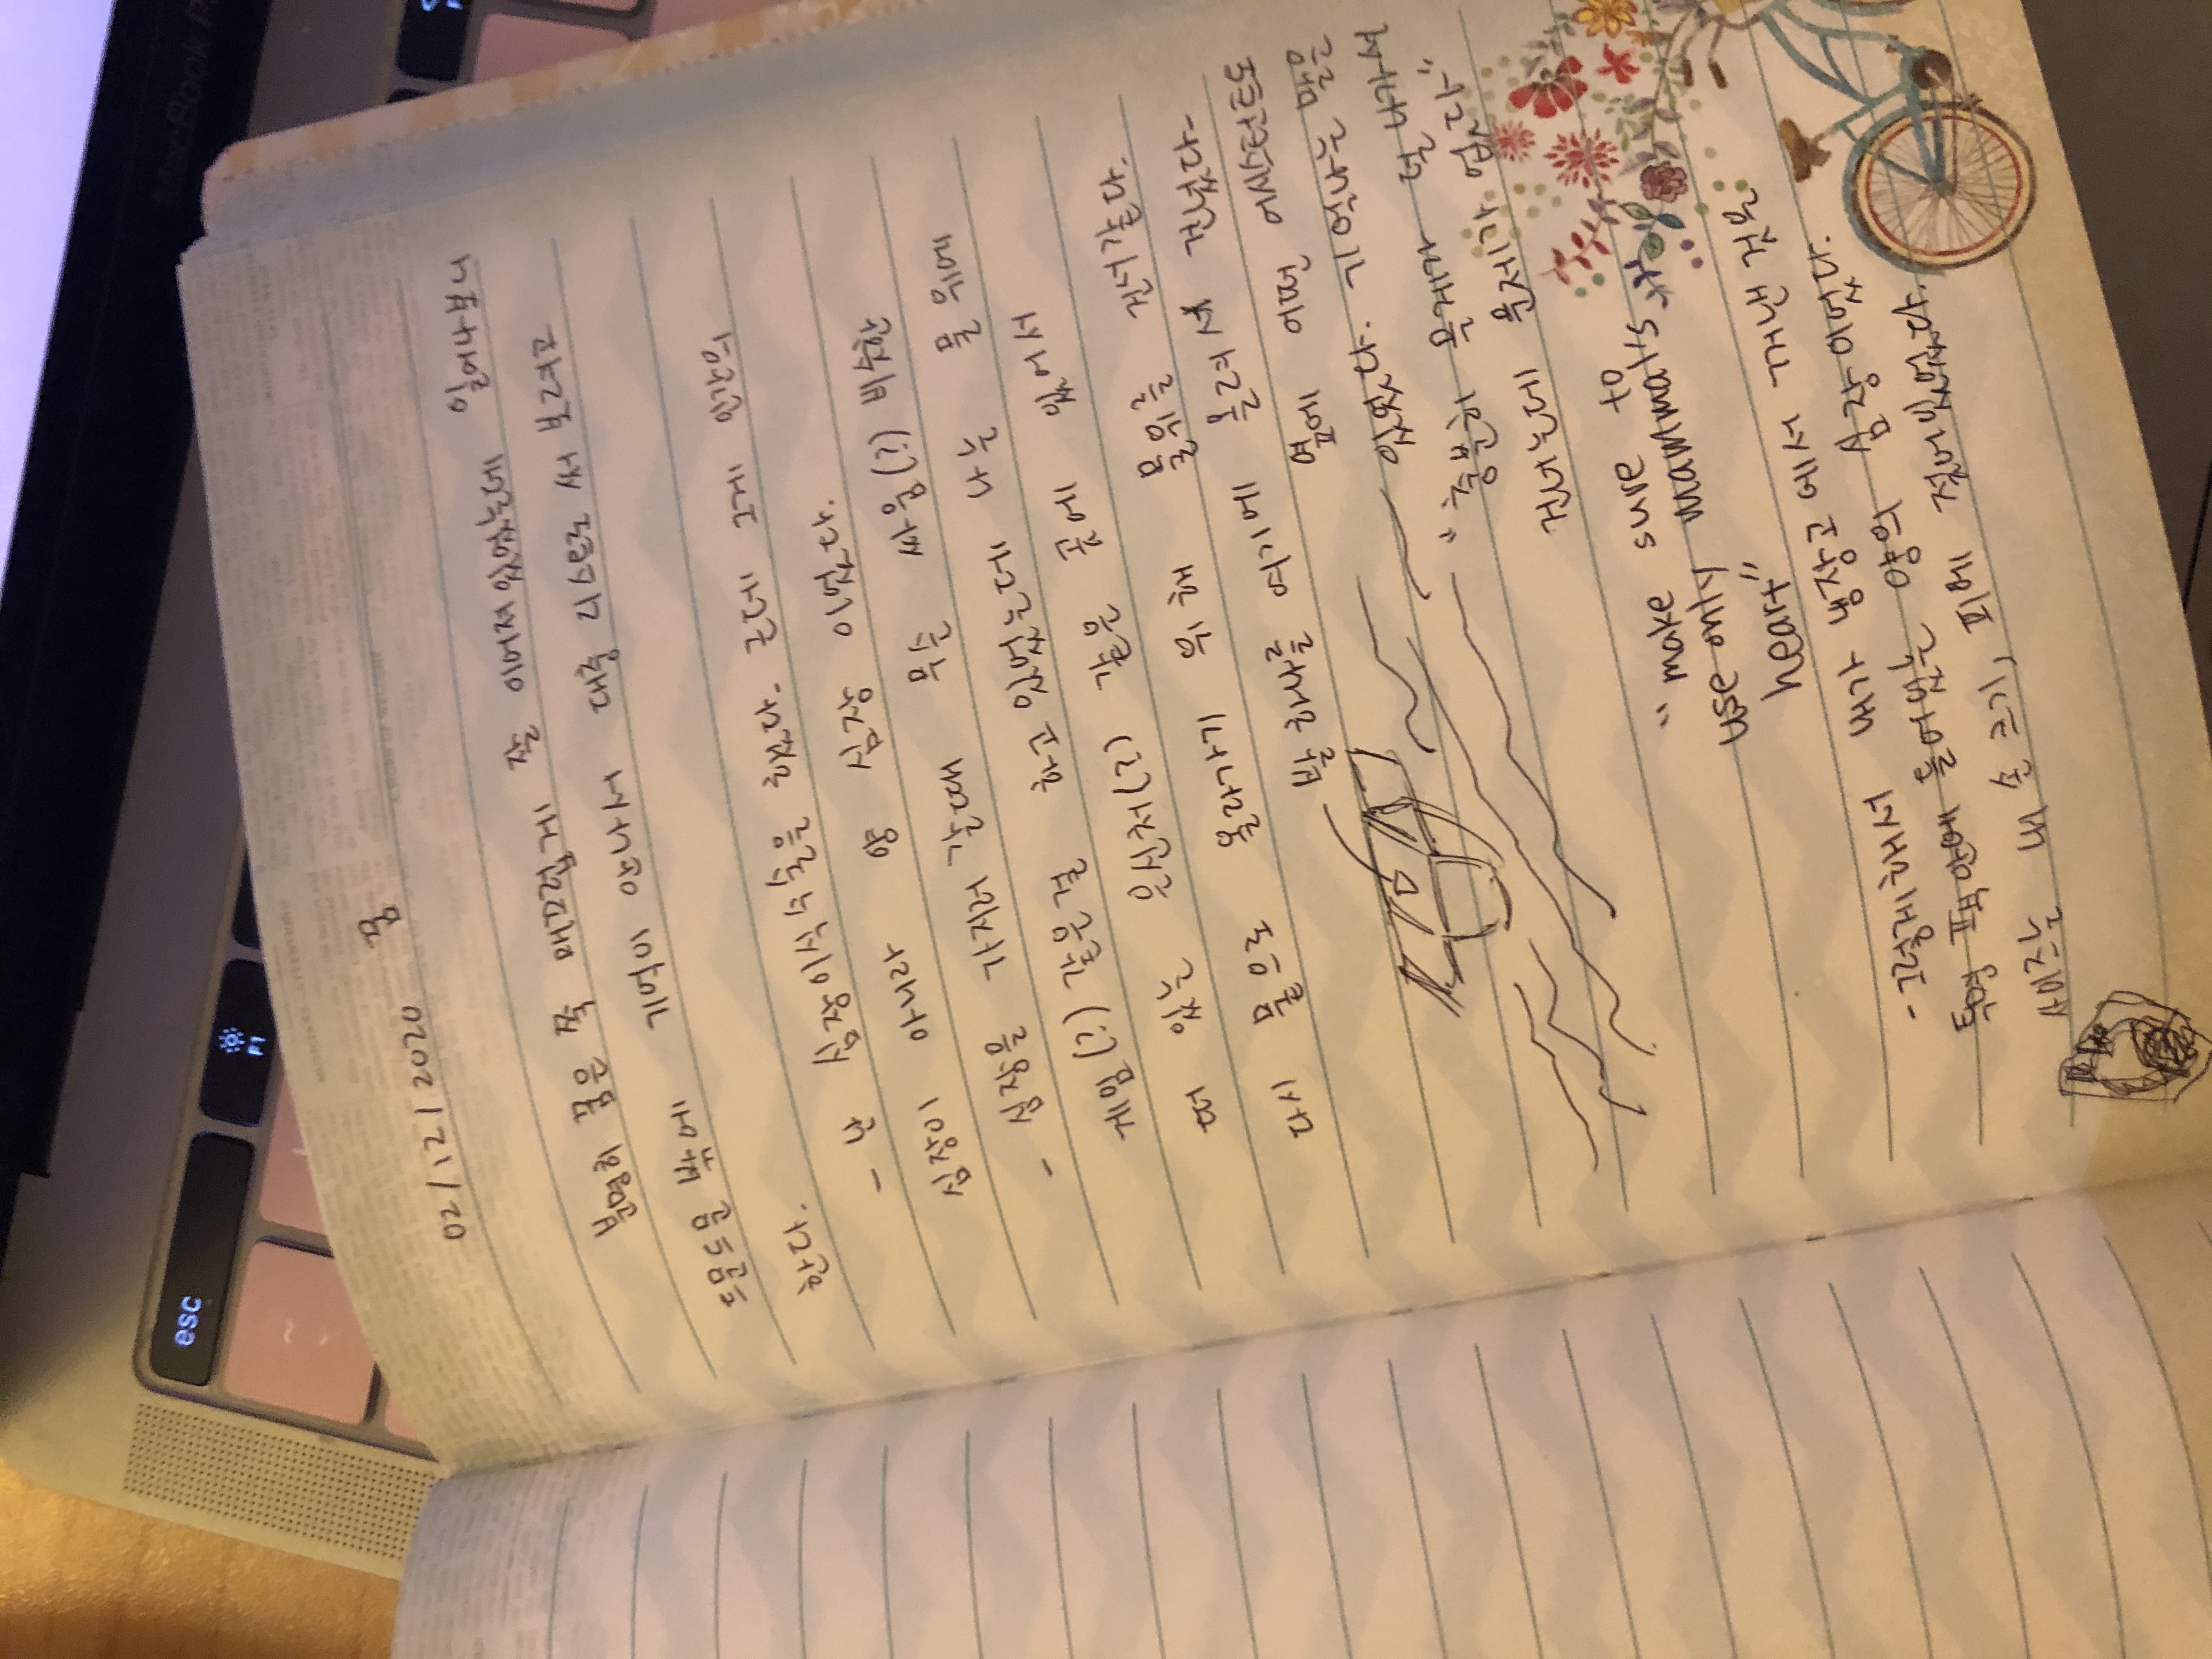 MacBook P
esc
F1
02/12/2020 꿈
분명히 꿈은 쭉 매끄럽게 잘 이어져있었는데 일어나보니
드문드문 밖에 기억이 안나서 대충 리스트로 써 보려고
한다.
- 난 심장이식수술을 했다. 근데 그게 인간의
심장이 아니라 양 심장 이었다.
- 심장을 가지러 갈때 무슨 싸움(?) 비슷한
게임(?) 같은걸 하고있었는데 나는 물 위에
떠 있는 은신처(?) 같은 곳에 있어서
다시 뭍으로 올라가기 위해 물위를 건너갔다.
발 하나를 여기에 올려서 건넜다-
옆에 어떤 어시스턴트도
있었다. 기억나는 말은
"충분히 무게가 덜 나가서
건너는데 문제가 없다"
"make sure to
use only mammal's
heart"
- 그렇게해서 내가 냉장고에서 꺼낸 것은
투명 팩안에 들어있는 양의 심장이었다.
사이즈는 내 손 크기, 피에 젖어있었다.